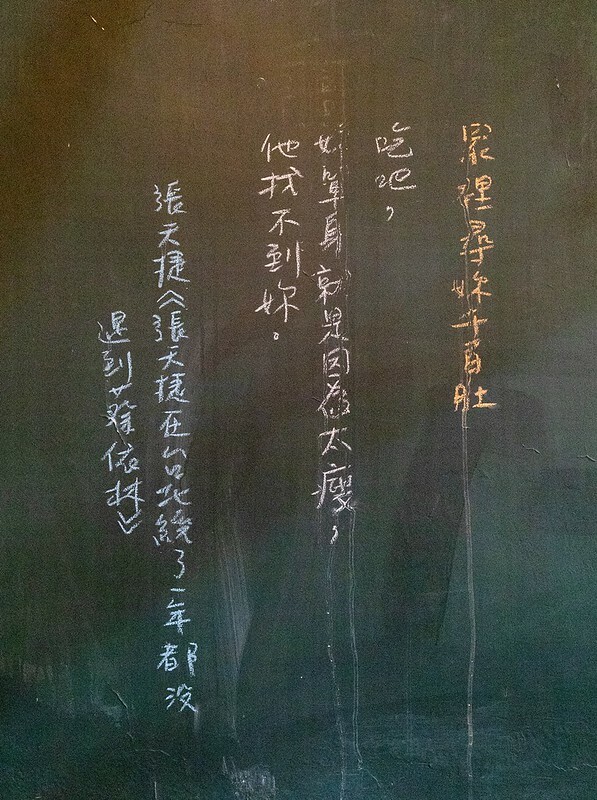 眾裡尋妳千百肚
吃吧，
妳單身就是因為太瘦，
他找不到妳。
張天捷《張天捷在台北繞了一年都沒
遇到蔡依林》